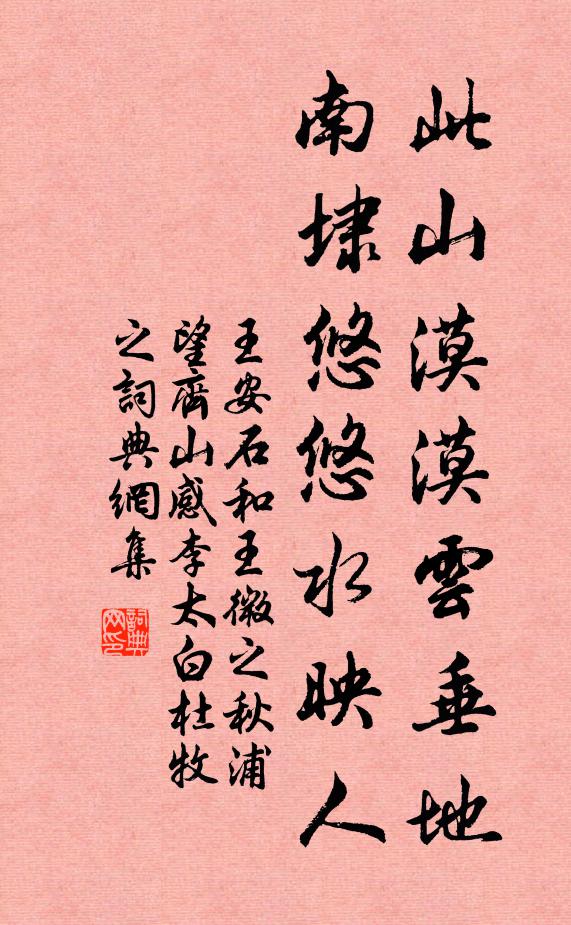 此山漠漠雲垂地
南埭悠悠水映人
王安石和王微之秋浦
望齊山感李太白杜牧
之詞典網集
詞典
网印